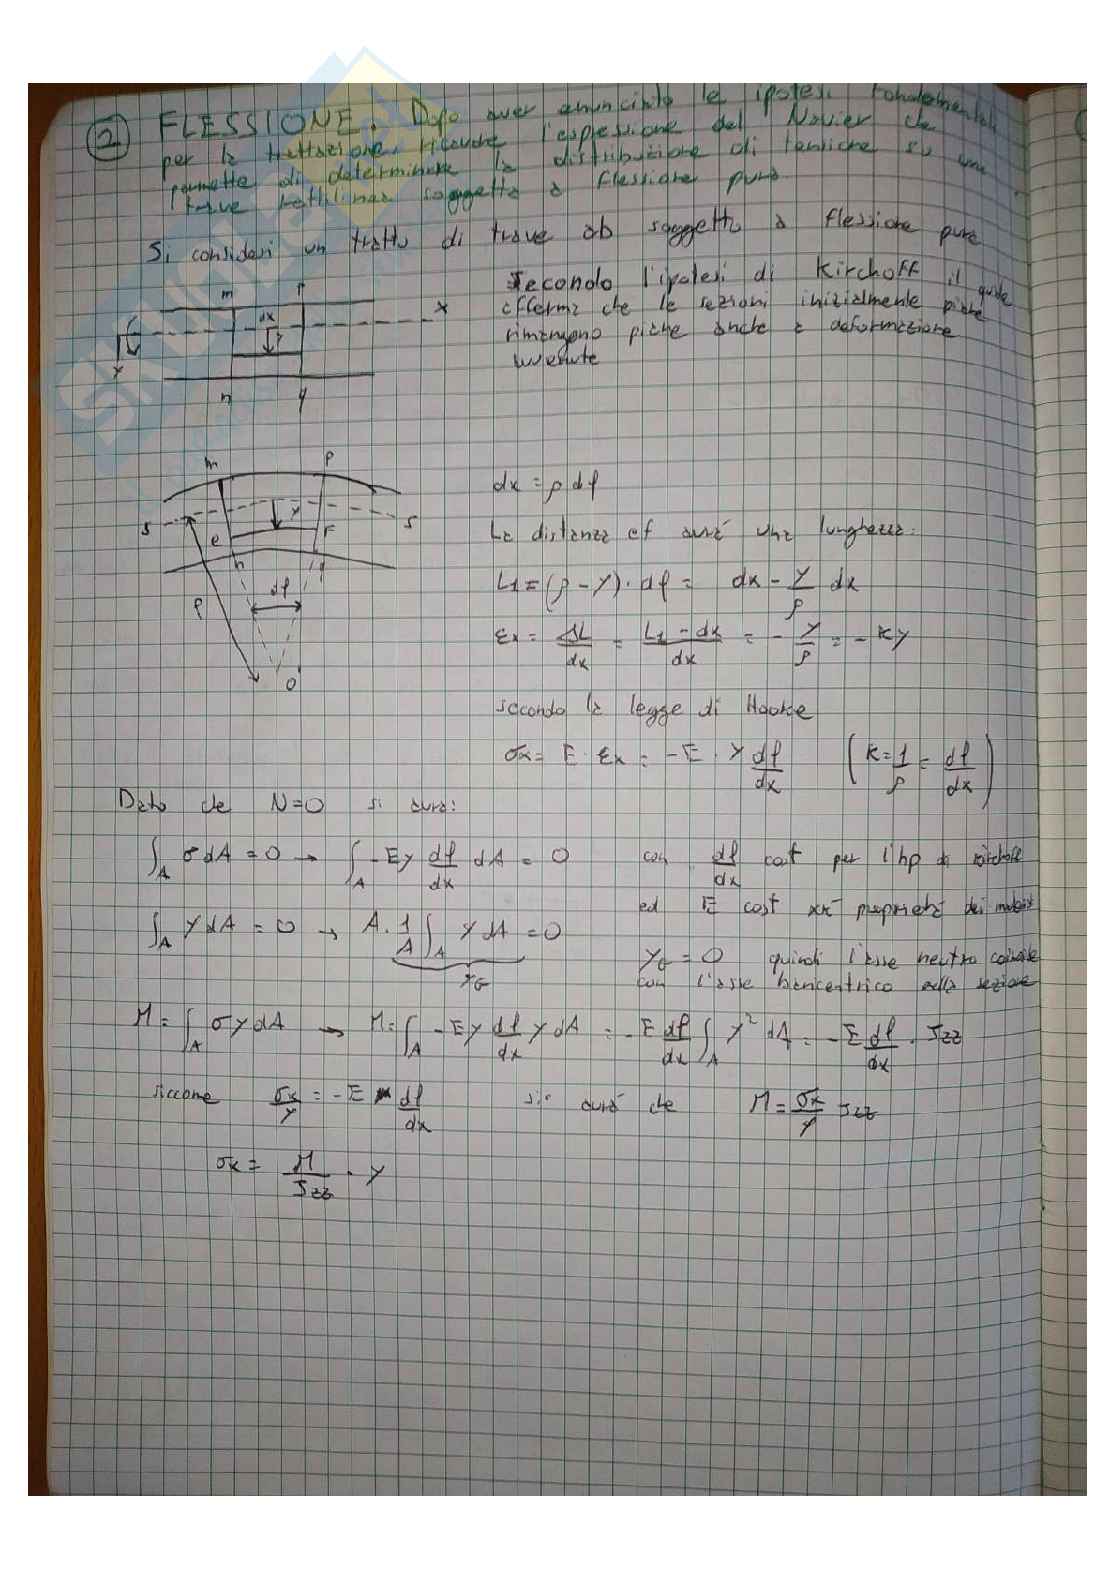 2 FLESSIONE. Dopo aver enunciato le ipotesi fondamentali
per la trattazione, ricavare l'espressione del Navier che
permette di determinare la distribuzione di tensione su una
trave rettilinea soggetta a flessione pura.
Si consideri un tratto di trave ab soggetto a flessione pura
Secondo l'ipotesi di Kirchoff il quale
afferma che le sezioni inizialmente piane
rimangono piane anche a deformazione
avvenute
m p
dx
x
y
y
n q
m p
s y s
e f
n q
ρ dφ
O
dx = ρ dφ
La distanza ef avrà una lunghezza:
L1 = (ρ - y) · dφ = dx - y/ρ dx
εx = ΔL/dx = L1 - dx/dx = - y/ρ = - ky
secondo la legge di Hooke
σx = E · εx = - E · y dφ/dx (k = 1/ρ = dφ/dx)
Dato che N=0 si avrà:
∫A σ dA = 0 → ∫A - Ey dφ/dx dA = 0 con dφ/dx cost per l'hp di Kirchoff
ed E cost proprietà dei materiali
∫A y dA = 0 → A · 1/A ∫A y dA = 0
yG
yG = 0 quindi l'asse neutro coincide
con l'asse baricentrico della sezione
M = ∫A σ y dA → M = ∫A - Ey dφ/dx y dA = - E dφ/dx ∫A y² dA = - E dφ/dx · Jzz
siccome σx/y = - E dφ/dx si avrà che M = σx/y Jzz
σx = M/Jzz · y